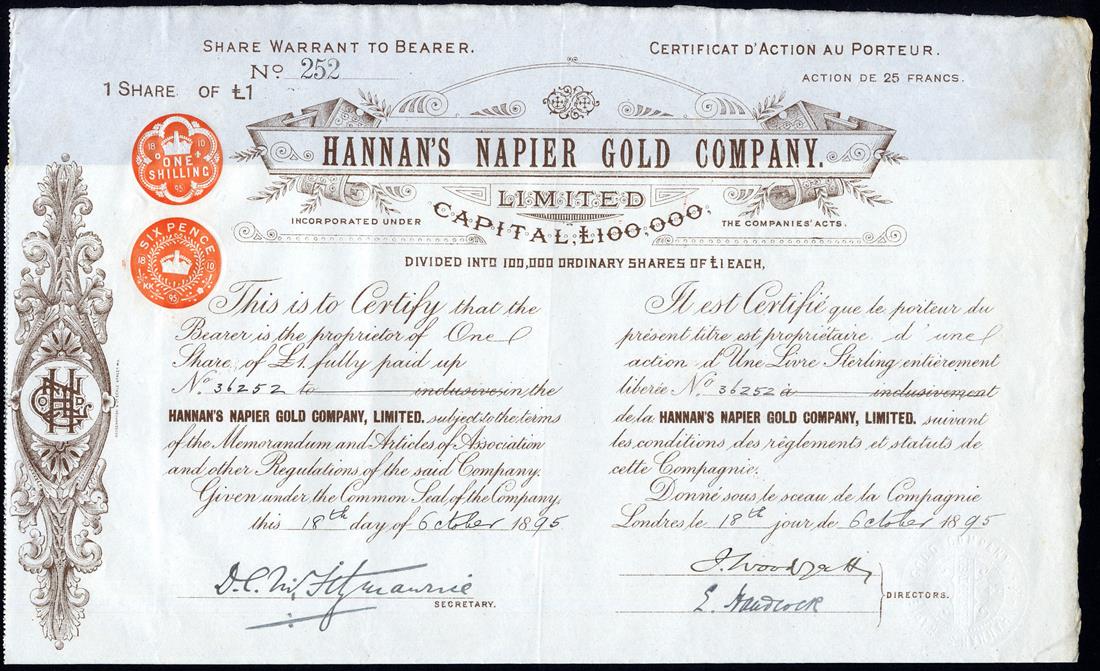 SHARE WARRANT TO BEARER.
No 252
1 SHARE OF £1
CERTIFICAT D'ACTION AU PORTEUR.
ACTION DE 25 FRANCS.
18 10
ONE
SHILLING
95
HANNAN'S NAPIER GOLD COMPANY.
LIMITED
INCORPORATED UNDER
CAPITAL, £100,000,
THE COMPANIES' ACTS.
DIVIDED INTO 100,000 ORDINARY SHARES OF £1 EACH,
SIXPENCE
18 10
KK 95
This is to Certify that the
Bearer is the proprietor of One
Share, of £1. fully paid up
No. 36252 to inclusive, in the
HANNAN'S NAPIER GOLD COMPANY, LIMITED. subject to the terms
of the Memorandum and Articles of Association
and other Regulations of the said Company.
Given under the Common Seal of the Company,
this 18th day of October 1895
Il est Certifié que le porteur du
présent titre est propriétaire d'une
action d'Une Livre Sterling entièrement
liberée No 36252 à inclusivement
de la HANNAN'S NAPIER GOLD COMPANY, LIMITED. suivant
les conditions des règlements et statuts de
cette Compagnie.
Donné sous le sceau de la Compagnie
Londres le 18th jour de October 1895
SECRETARY.
E. Handcock
DIRECTORS.